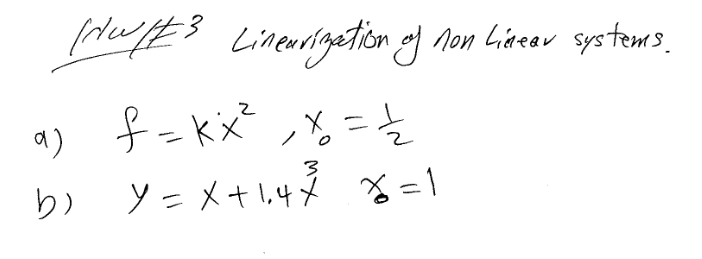 HW#3 Linearization of non Linear systems.
a) f = kẋ² , x₀ = 1/2
b) y = x + 1.4x³ x₀ = 1